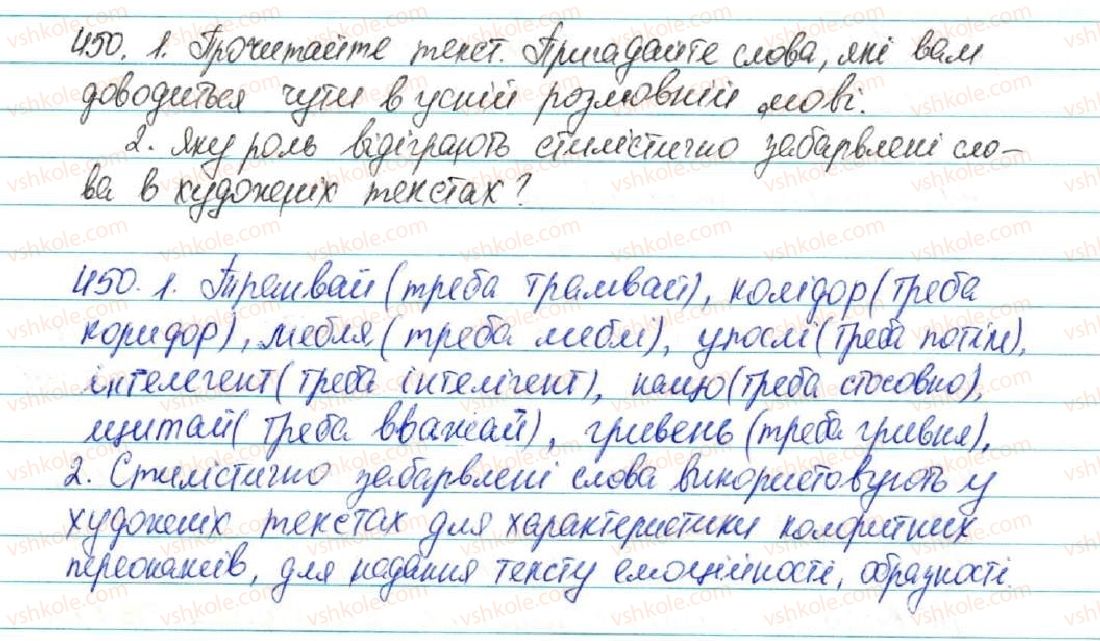 450. 1. Прочитайте текст. Пригадайте слова, які вам
доводиться чути в усній розмовній мові.
2. Яку роль відіграють стилістично забарвлені сло-
ва в художніх текстах?
450. 1. Транвай (треба трамвай), колідор (треба
коридор), мебля (треба меблі), упослі (треба потім),
інтелегент (треба інтелігент), (треба стосовно),
щитай (треба вважай), гривень (треба гривня).
2. Стилістично забарвлені слова використовують у
художніх текстах для характеристики колоритних
персонажів, для надання тексту емоційності, образності.
vshkole.com